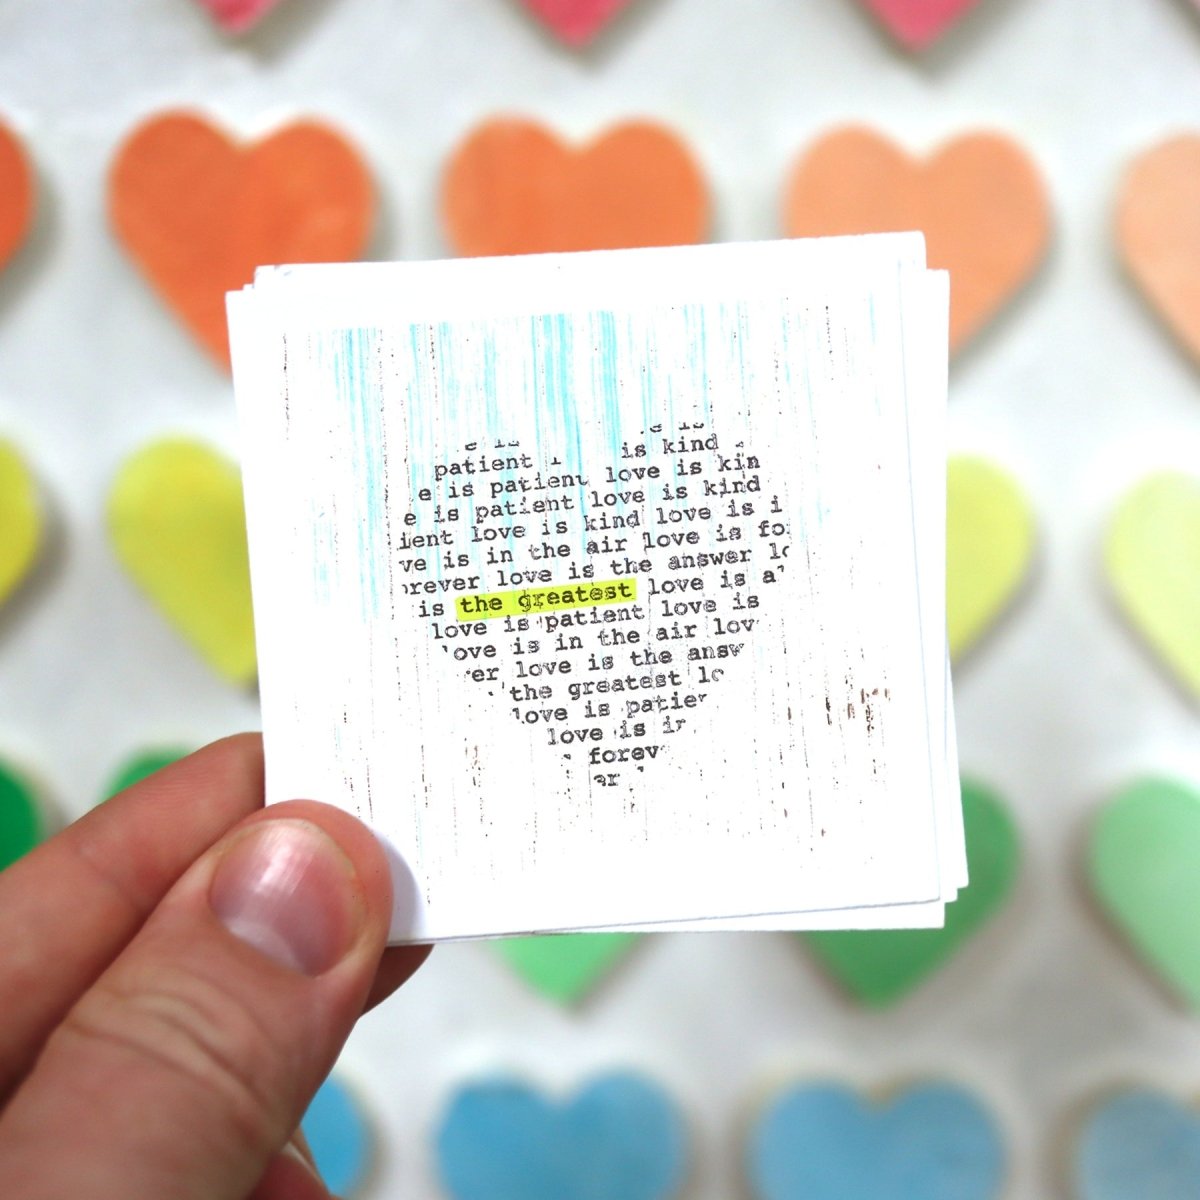 is kind
patient
is patient love is kin
e is patient love is kind
ient love is kind love is i
ve is in the air love is fo
rever love is the answer lo
is the greatest love is a
love is patient love is
ove is in the air lov
er love is the answ
the greatest lo
love is patie
love is in
forev
er